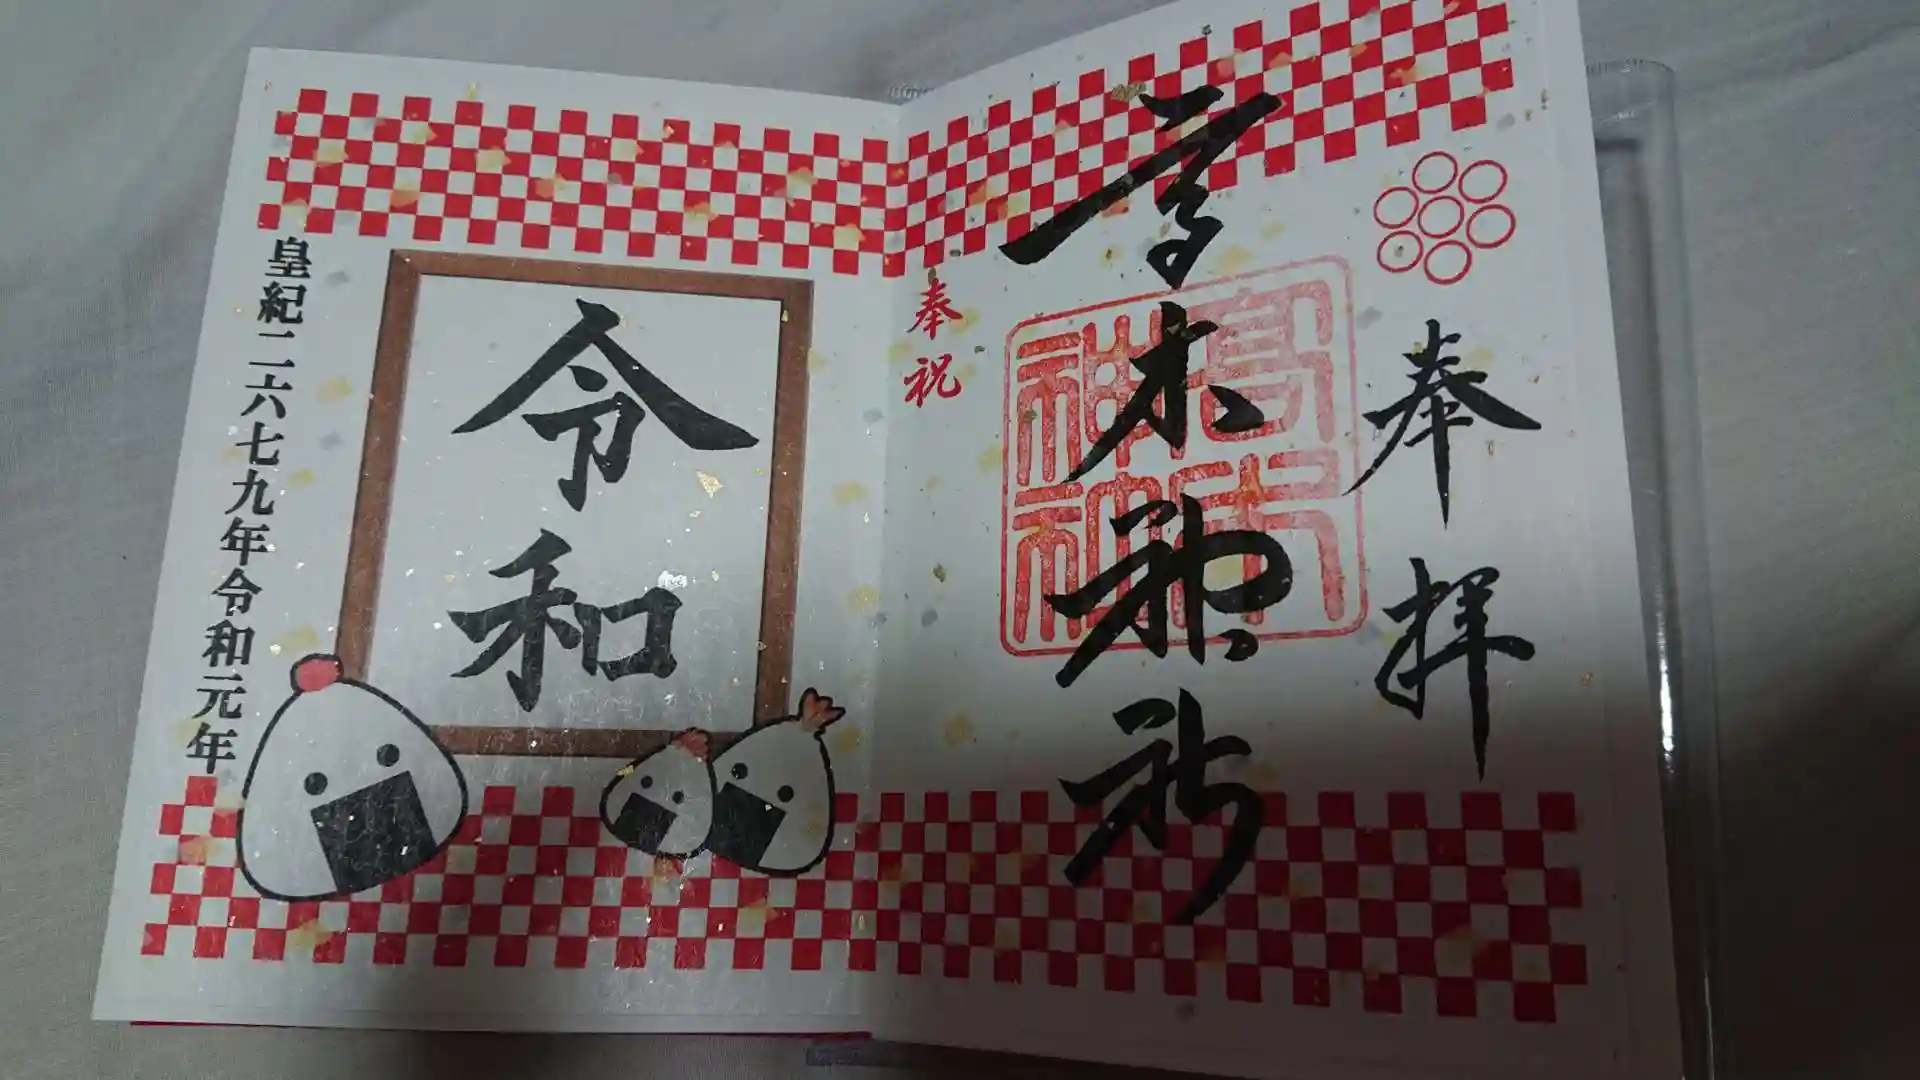 奉拝
高木神社
高木神社神印
奉祝
令和
皇紀二六七九年令和元年